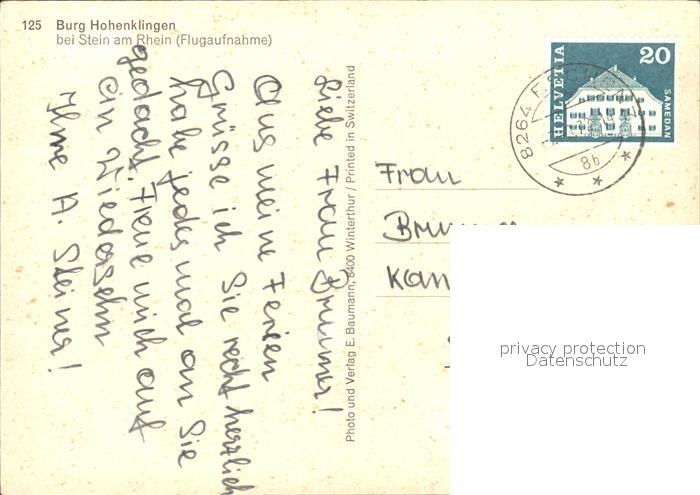 125 Burg Hohenklingen
bei Stein am Rhein (Flugaufnahme)
Liebe Frau Brunner!
Aus meine Ferien
Grüsse ich Sie recht herzlich
habe jedes mal an Sie
gedacht. Freue mich auf
ein Wiedersehn
Ihre A. Steiner!
Photo und Verlag E. Baumann, 8400 Winterthur / Printed in Switzerland
HELVETIA
20
SAMEDAN
8264
8b
Frau
Brunner
Kan
privacy protection
Datenschutz